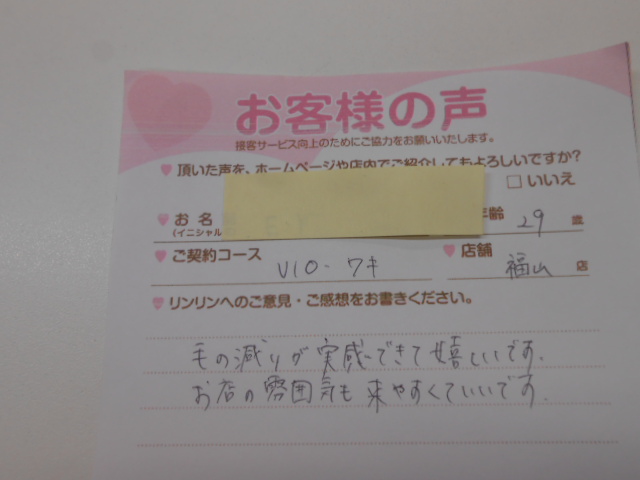 お客様の声
接客サービス向上のためにご協力をお願いいたします。
頂いた声を、ホームページや店内でご紹介してもよろしいですか?
□ いいえ
お名
(イニシャル
年齢 29 歳
ご契約コース VIO・ワキ
店舗 福山 店
リンリンへのご意見・ご感想をお書きください。
毛の減りが実感できて嬉しいです。
お店の雰囲気も来やすくていいです。